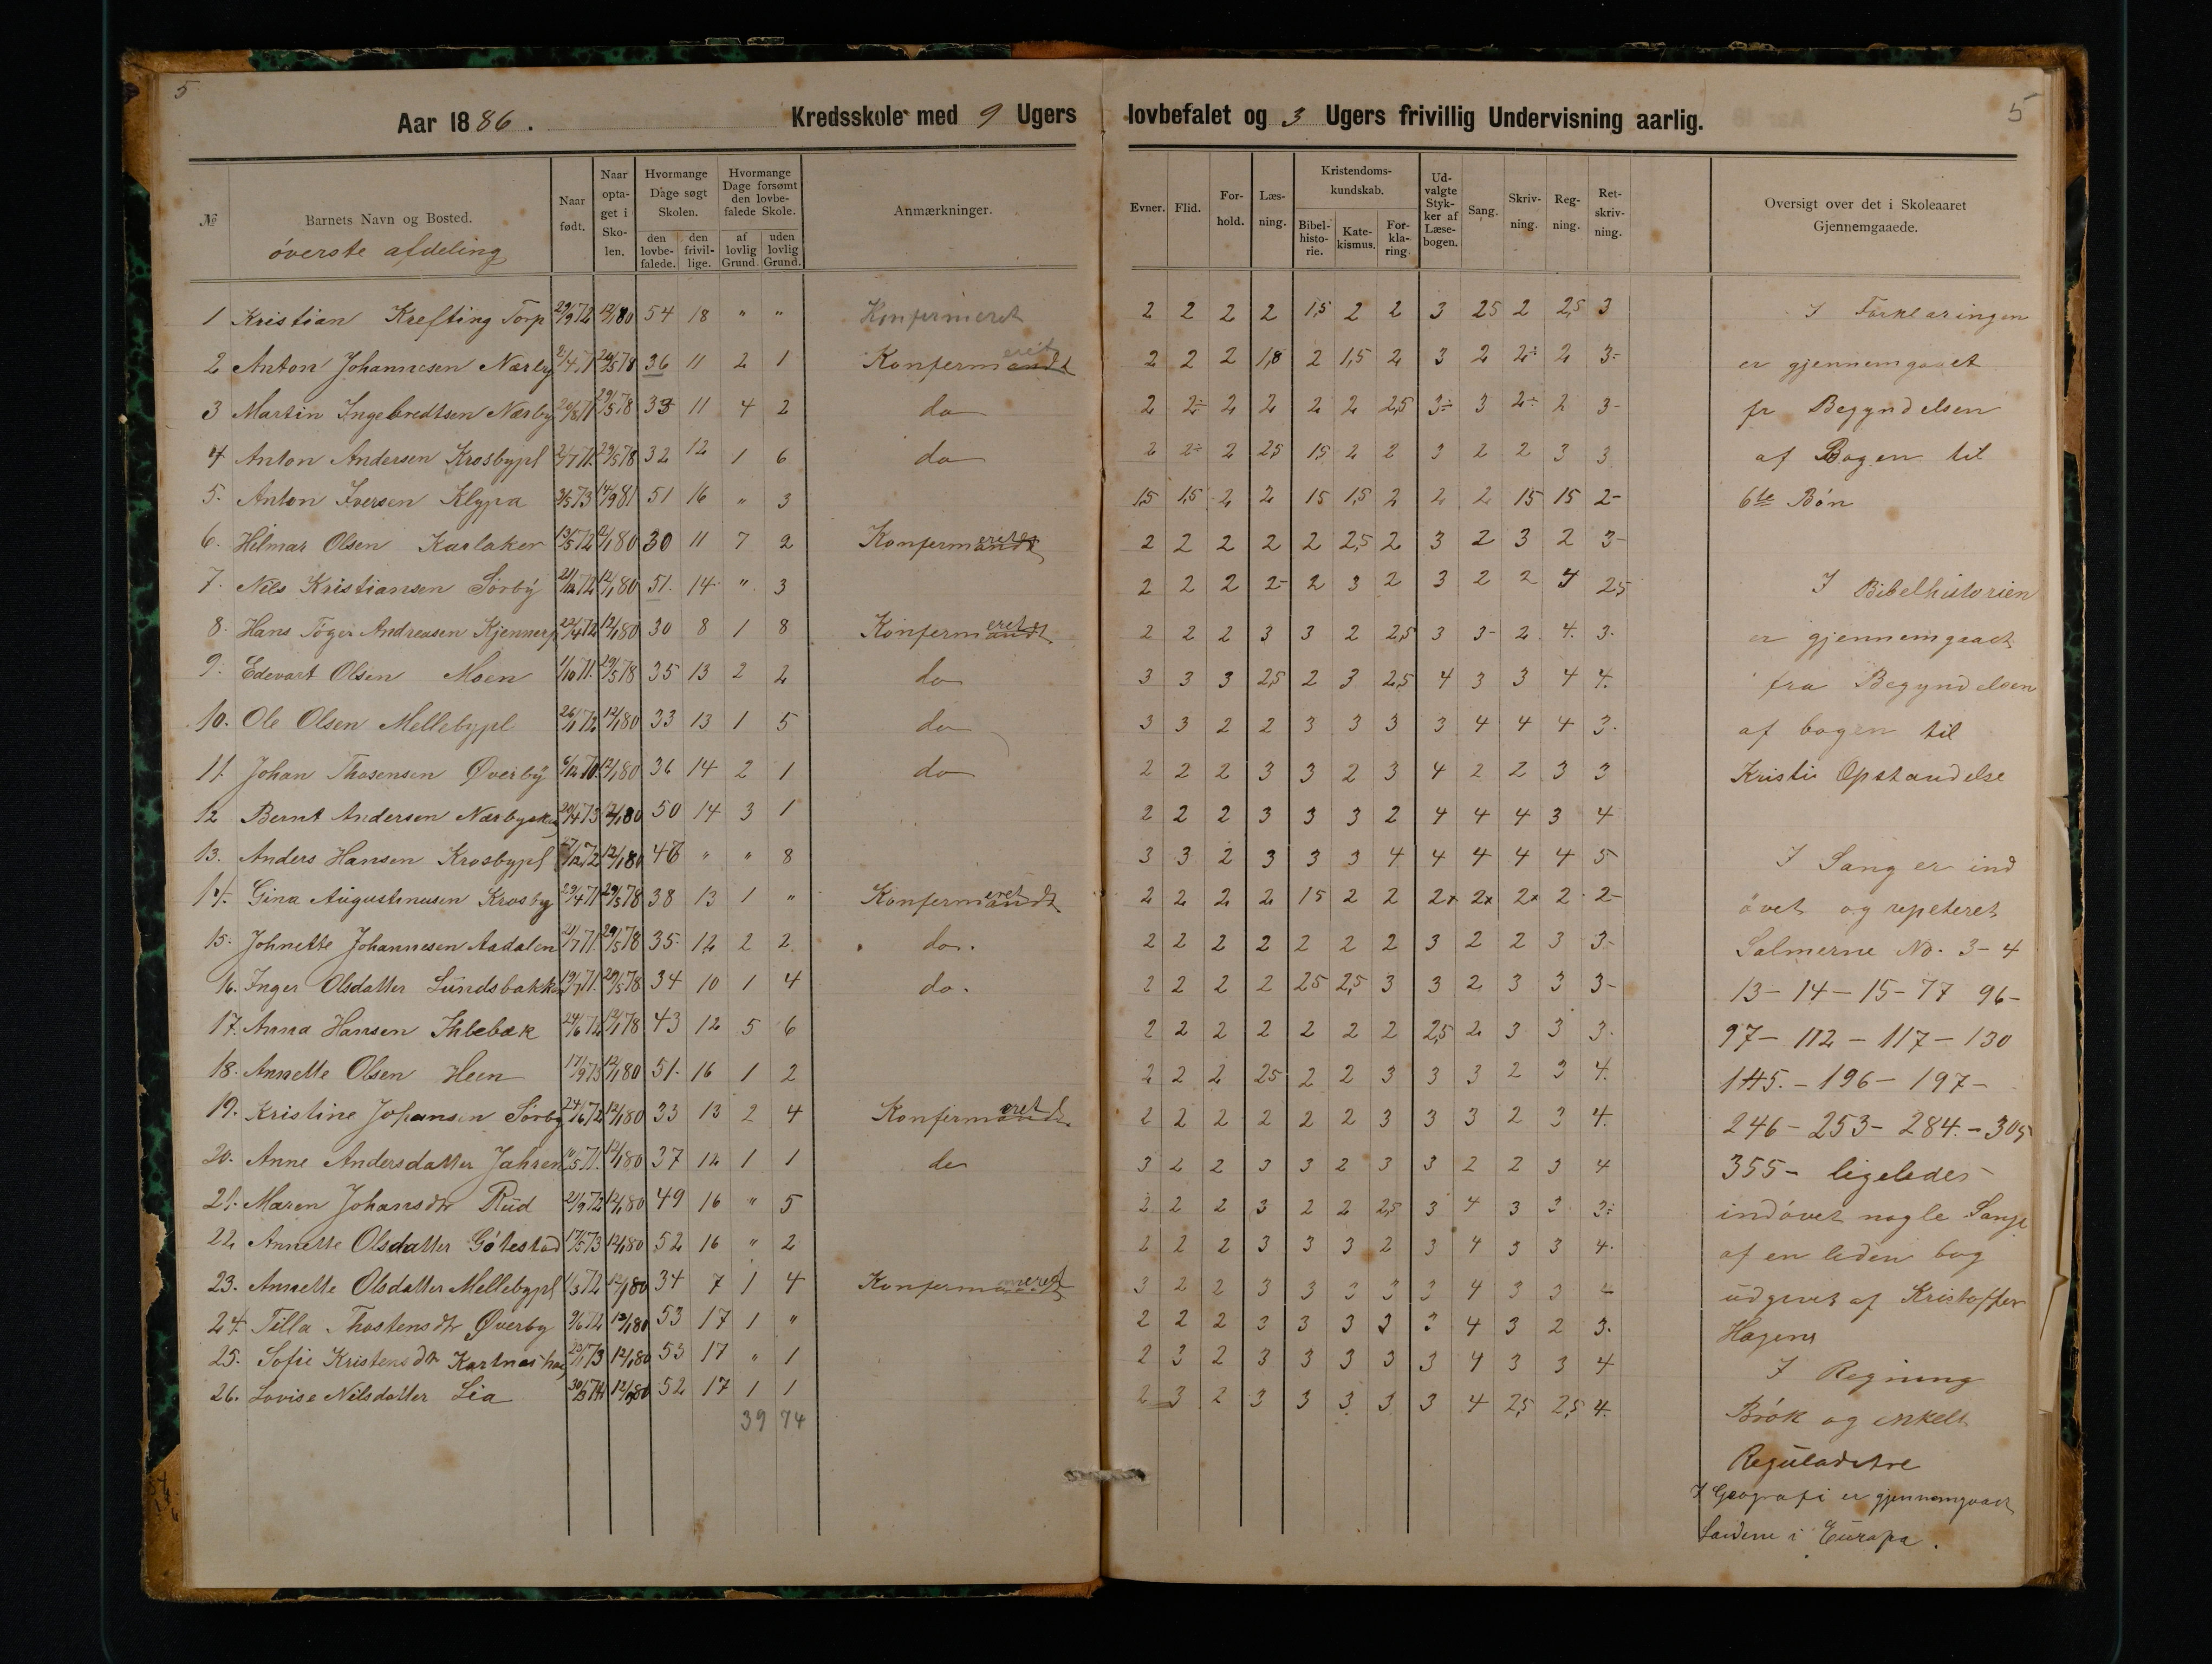 5
5
Aar 1886. Kredsskole med 9 Ugers lovbefalet og 3 Ugers frivillig Undervisning aarlig.
№ Barnets Navn og Bosted. Naar født. Naar optaget i Skolen. Hvormange Dage søgt Skolen. den lovbefalede. den frivillige. Hvormange Dage forsømt den lovbefalede Skole. af lovlig Grund. uden lovlig Grund. Anmærkninger. Evner. Flid. Forhold. Læsning. Kristendomskundskab. Bibelhistorie. Katekismus. Forklaring. Udvalgte Stykker af Læsebogen. Sang. Skrivning. Regning. Retskrivning. Oversigt over det i Skoleaaret Gjennemgaaede.
överste afdeling
1 Kristian Krefting Torp 29/9 72 12/1 80 54 18 " " Konfirmeret 2 2 2 2 1,5 2 2 3 25 2 2,5 3
2 Anton Johannesen Nærby 2/4 71 29/5 78 36 11 2 1 Konfermandt eret 2 2 2 1,8 2 1,5 2 3 2 2÷ 2 3-
3 Martin Ingebredtsen Næsby 20/8 71 29/5 78 33 11 4 2 do 2 2÷ 2 2 2 2 2,5 3÷ 3 2÷ 2 3-
4 Anton Andersen Krosbypl 2/7 71. 29/5 78 32 12 1 6 do 2 2÷ 2 25 15 2 2 3 2 2 3 3
5. Anton Iversen Klypa 3/5 73 14/9 81 51 16 " 3 15 15 2 2 15 1,5 2 2 2 15 15 2-
6. Hilmar Olsen Karlaker 13/5 72 12/1 80 30 11 7 2 Konfermandt eret 2 2 2 2 2 2,5 2 3 2 3 2 3-
7. Nils Kristiansen Sörby 21/12 72 12/1 80 51. 14 " 3 2 2 2 2- 2 3 2 3 2 2 4 25
8. Hans Töger Andreasen Kjennerp 22/4 72 12/1 80 30 8 1 8 Konfermandt eret 2 2 2 3 3 2 2,5 3 3- 2 4. 3.
9. Edevart Olsen Moen 1/10 71. 29/5 78 35 13 2 2 do 3 3 3 2,5 2 3 2,5 4 3 3 4 4.
10. Ole Olsen Mellebypl 26/1 72 12/1 80 33 13 1 5 do 3 3 2 2 3 3 3 3 4 4 4 3.
11. Johan Thosensen Øverby 6/12 70. 12/1 80 36 14 2 1 do 2 2 2 3 3 2 3 4 2 2 3 3
12 Bernt Andersen 20/4 73 12/1 80 50 14 3 1 2 2 2 3 3 3 2 4 4 4 3 4
13. Anders Hansen Krosbypl 12/1 80 48 " " 8 3 3 2 3 3 3 4 4 4 4 4 5
14. Gina Augustinusen Krosby 29/4 71 29/5 78 38 13 1 " Konfermandt eret 2 2 2 2 15 2 2 2x 2x 2x 2 2-
15. Johnette Johannesen Aadalen 21/7 71 29/5 78 35. 12 2 2 do. 2 2 2 2 2 2 2 3 2 2 3 3-
16. Inger Olsdatter Lundsbakken 19/7 71. 29/5 78 34 10 1 4 do. 2 2 2 2 25 2,5 3 3 2 3 3 3-
17. Anna Hansen Ihlebæk 24/6 72 12/1 78 43 12 5 6 2 2 2 2 2 2 2 2,5 2 3 3 3.
18. Annette Olsen Heen 17/9 73 12/1 80 51. 16 1 2 2 2 2 25 2 2 3 3 3 2 3 4.
19. Kristine Johansen Sörby 24/6 72 12/1 80 33 13 2 4 Konfermandt eret 2 2 2 2 2 2 3 3 3 2 3 4.
20. Anne Andersdatter Jahren 11/5 71. 12/1 80 37 12 1 1 do 3 2 2 3 3 2 3 3 2 2 3 4
21. Maren Johansdtr Rud 21/9 72 12/1 80 49 16 " 5 2 2 2 3 2 2 2,5 3 4 3 3 3÷
22. Annette Olsdatter Götestad 17/5 73 12/1 80 52 16 " 2 2 2 2 3 3 3 2 3 4 3 3 4.
23. Annette Olsdatter Mellebypl 1/3 72 12/1 80 34 7 1 4 Konfermandt meret 3 2 2 3 3 3 3 3 4 3 3 4
24. Tilla Thostensdtr Øverby 9/6 72 12/1 80 53 17 1 " 2 2 2 3 3 3 3 3 4 3 2 3.
25. Sofie Kristensdtr 23/1 73 12/1 80 53 17 " 1 2 3 2 3 3 3 3 3 4 3 3 4
26. Lovise Nilsdatter Lia 30/3 74 12/1 80 52 17 1 1 2 3 2 3 3 3 3 3 4 2,5 2,5 4.
39 74
I Forklaringen
er gjennemgaaet
fr Begyndelsen
af Bogen til
6te Bön
I Bibelhistorien
er gjennemgaaet
fra Begyndelsen
af bogen til
Kristi Opstandelse
I Sang er ind
övet og repeteret
Salmerne No. 3-4
13-14-15-77 96-
97-112-117-130
145.-196-197-
246-253-284.-305
355- ligeledes
indövet nogle Sange
af en leden bog
udgivet af Kristoffer
Hagens
I Regning
Brök og enkelt
Reguladetre
I Geografi er gjennemgaaet
Landene i Europa.